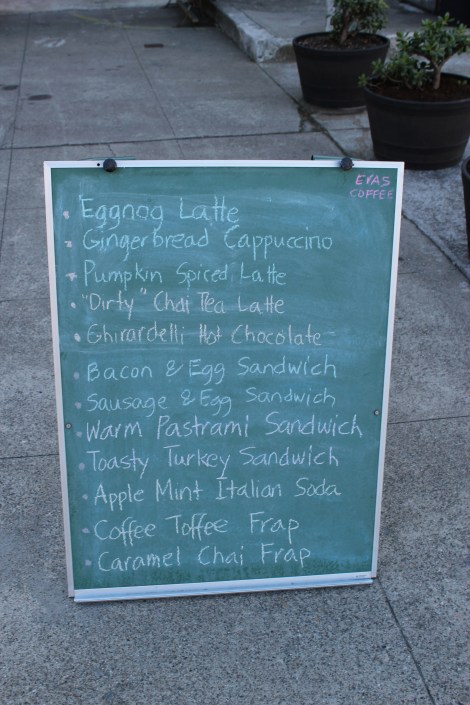 EVAS
COFFEE
Eggnog Latte
Gingerbread Cappuccino
Pumpkin Spiced Latte
"Dirty" Chai Tea Latte
Ghirardelli Hot Chocolate
Bacon & Egg Sandwich
Sausage & Egg Sandwich
Warm Pastrami Sandwich
Toasty Turkey Sandwich
Apple Mint Italian Soda
Coffee Toffee Frap
Caramel Chai Frap